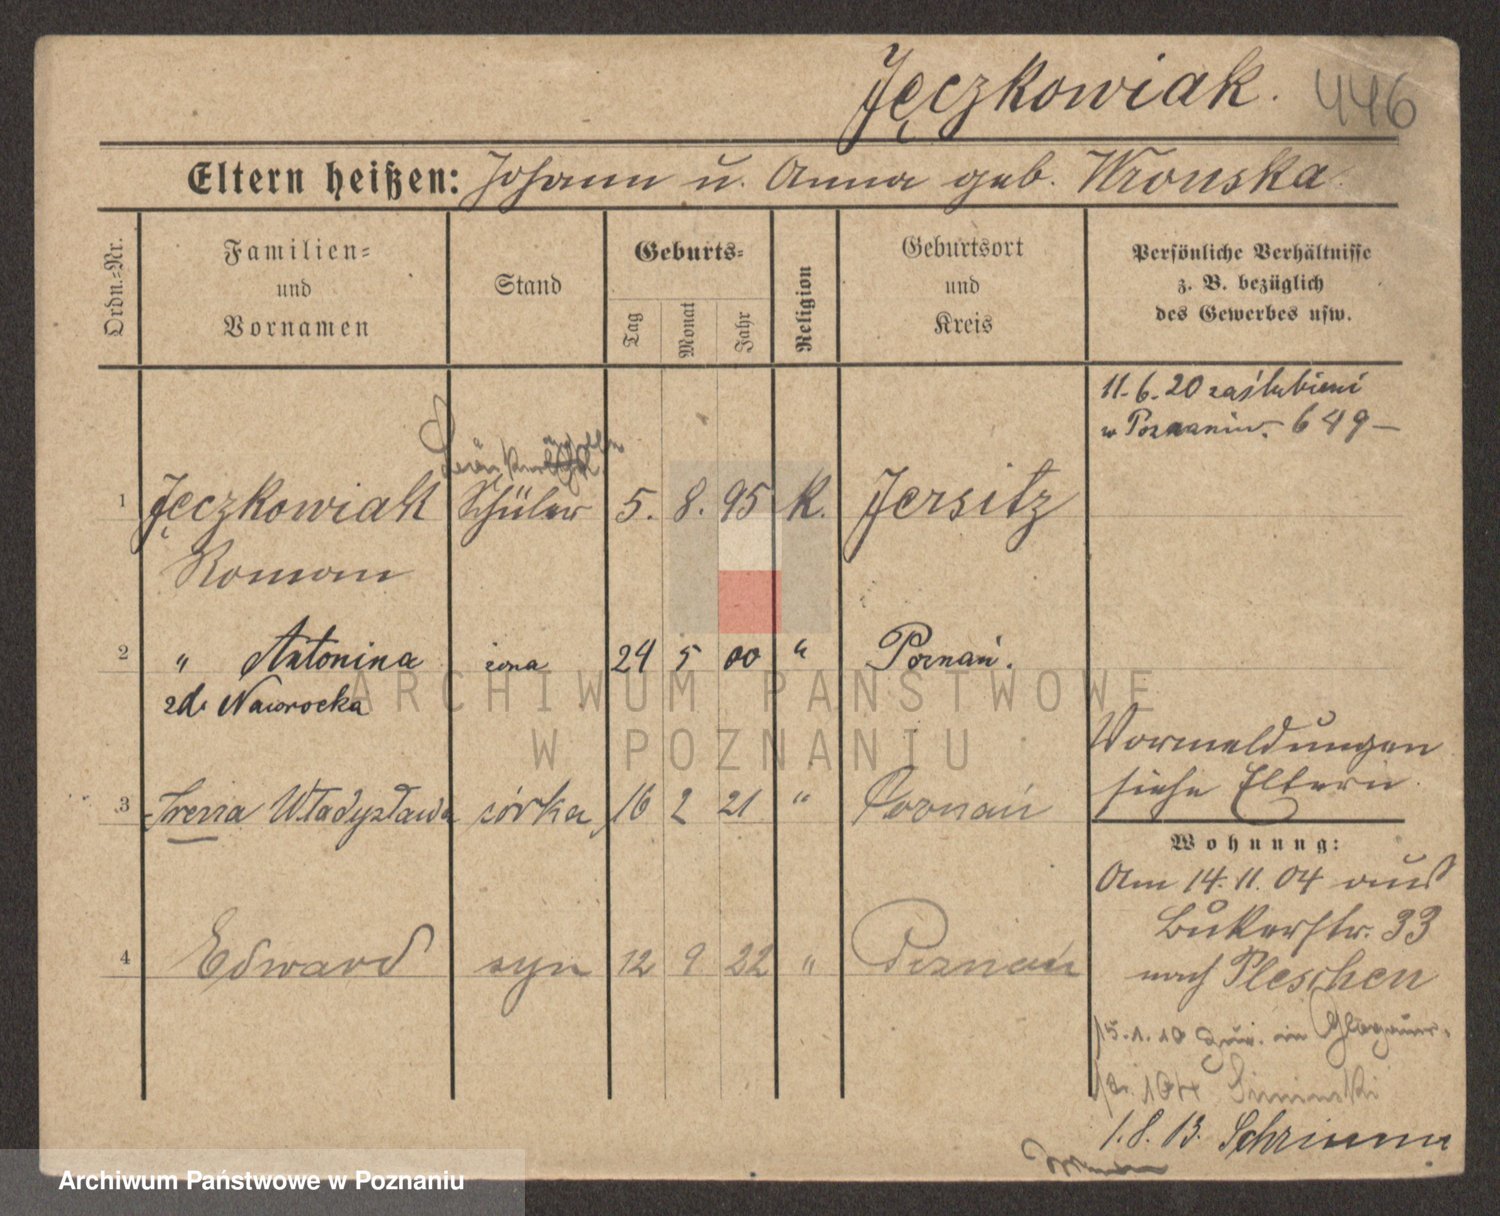 Jęczkowiak. 446
Eltern heißen: Johann u. Anna geb. Wronska.
Ordn.-Nr.
Familien-
und
Vornamen
Stand
Geburts-
Tag
Monat
Jahr
Religion
Geburtsort
und
Kreis
Persönliche Verhältnisse
z. B. bezüglich
des Gewerbes usw.
11.6.20 zaślubieni
w Poznaniu. 649 –
1 Jęczkowiak Schüler 5. 8. 95 k. Jersitz
Roman
2 " Antonina żona 24 5 00 " Poznań.
zd. Nawrocka
Vormeldungen
siehe Eltern.
3 Irena Władysława córka 16 2 21 " Poznań
Wohnung:
Am 14.11.04 aus
Bukerstr. 33
nach Pleschen
4 Edward syn 12 9 22 " Poznań
15.1.10 zur. in Glogauer-
104 Siminski
1.8.13. Schrimm
ARCHIWUM PAŃSTWOWE
W POZNANIU
Archiwum Państwowe w Poznaniu